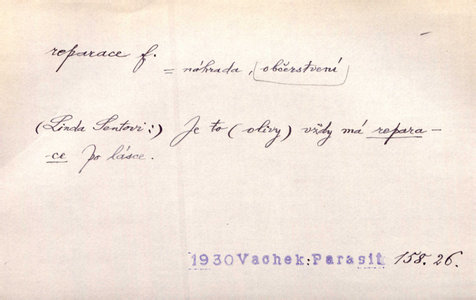 reparace f.
= náhrada, občerstvení
(Linda Sentovi:) Je to (olivy) vždy má repara-
ce po lásce.
1930 Vachek: Parasit 158.26.